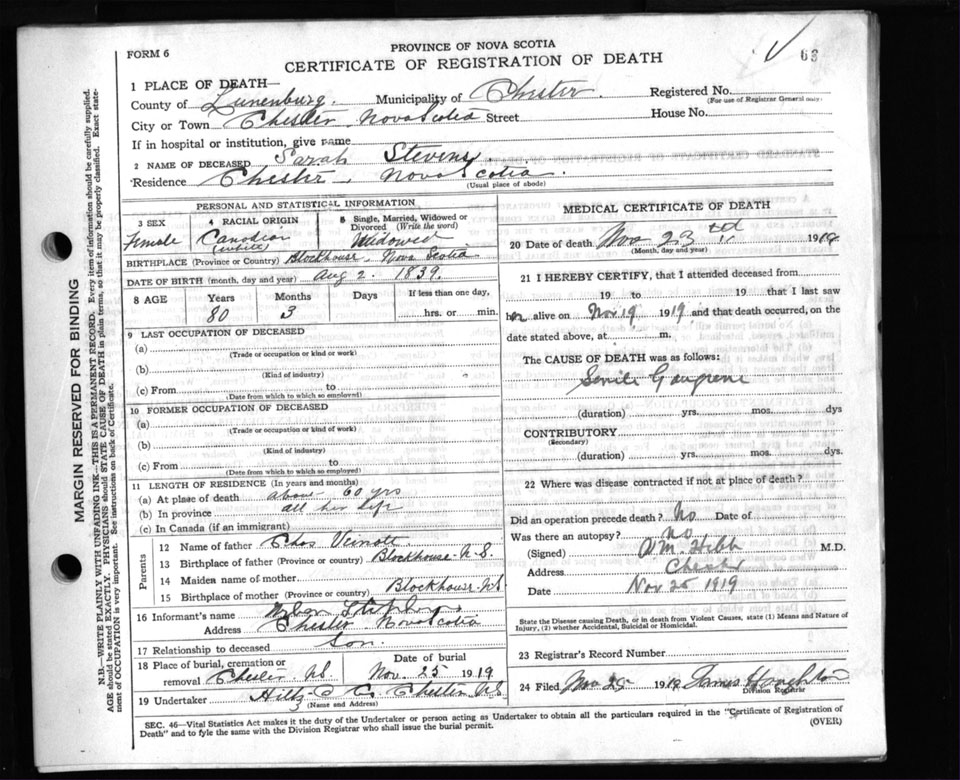 FORM 6
PROVINCE OF NOVA SCOTIA
CERTIFICATE OF REGISTRATION OF DEATH
63
1 PLACE OF DEATH—
County of Lunenburg. Municipality of Chester. Registered No.
(For use of Registrar General only)
City or Town Chester Nova Scotia Street House No.
If in hospital or institution, give name
2 NAME OF DECEASED Sarah Stevens.
Residence Chester, Nova Scotia.
(Usual place of abode)
PERSONAL AND STATISTICAL INFORMATION
3 SEX
Female
4 RACIAL ORIGIN
Canadian
(white)
5 Single, Married, Widowed or Divorced (Write the word)
Widowed
BIRTHPLACE (Province or Country) Blockhouse, Nova Scotia
DATE OF BIRTH (month, day and year) Aug 2. 1839.
8 AGE Years Months Days If less than one day,
80 3 hrs. or min.
9 LAST OCCUPATION OF DECEASED
(a)
(Trade or occupation or kind or work)
(b)
(Kind of industry)
(c) From to
(Date from which to which so employed)
10 FORMER OCCUPATION OF DECEASED
(a)
(Trade or occupation or kind of work)
(b)
(Kind of industry)
(c) From to
(Date from which to which so employed)
11 LENGTH OF RESIDENCE (In years and months)
(a) At place of death 60 yrs
(b) In province all her life
(c) In Canada (if an immigrant)
Parents
12 Name of father Chas Veinott
13 Birthplace of father (Province or country) Blockhouse N.S.
14 Maiden name of mother
15 Birthplace of mother (Province or country) Blockhouse NS
16 Informant's name
Address Chester Nova Scotia
17 Relationship to deceased Son.
18 Place of burial, cremation or removal Chester NS Date of burial Nov. 25 1919
19 Undertaker Chester NS
(Name and Address)
MEDICAL CERTIFICATE OF DEATH
20 Date of death Nov 23 19
(Month, day and year)
21 I HEREBY CERTIFY, that I attended deceased from
19 to 19 that I last saw
her alive on Nov 19 1919 and that death occurred, on the
date stated above, at m.
The CAUSE OF DEATH was as follows:
Senile Gangrene
(duration) yrs. mos. dys
CONTRIBUTORY
(Secondary)
(duration) yrs. mos. dys.
22 Where was disease contracted if not at place of death?
Did an operation precede death? No Date of
Was there an autopsy? No
(Signed) M.D.
Address Chester
Date Nov 25 1919
State the Disease causing Death, or in death from Violent Causes, state (1) Means and Nature of Injury, (2) whether Accidental, Suicidal or Homicidal.
23 Registrar's Record Number
24 Filed Nov 25 1919 James Houghton
Division Registrar
SEC. 46—Vital Statistics Act makes it the duty of the Undertaker or person acting as Undertaker to obtain all the particulars required in the "Certificate of Registration of
Death" and to fyle the same with the Division Registrar who shall issue the burial permit. (OVER)
MARGIN RESERVED FOR BINDING
N.B.—WRITE PLAINLY WITH UNFADING INK—THIS IS A PERMANENT RECORD. Every item of information should be carefully supplied.
AGE should be stated EXACTLY. PHYSICIANS should STATE CAUSE OF DEATH in plain terms, so that it may be properly classified. Exact state-
ment of OCCUPATION is very important. See instructions on back of Certificate.